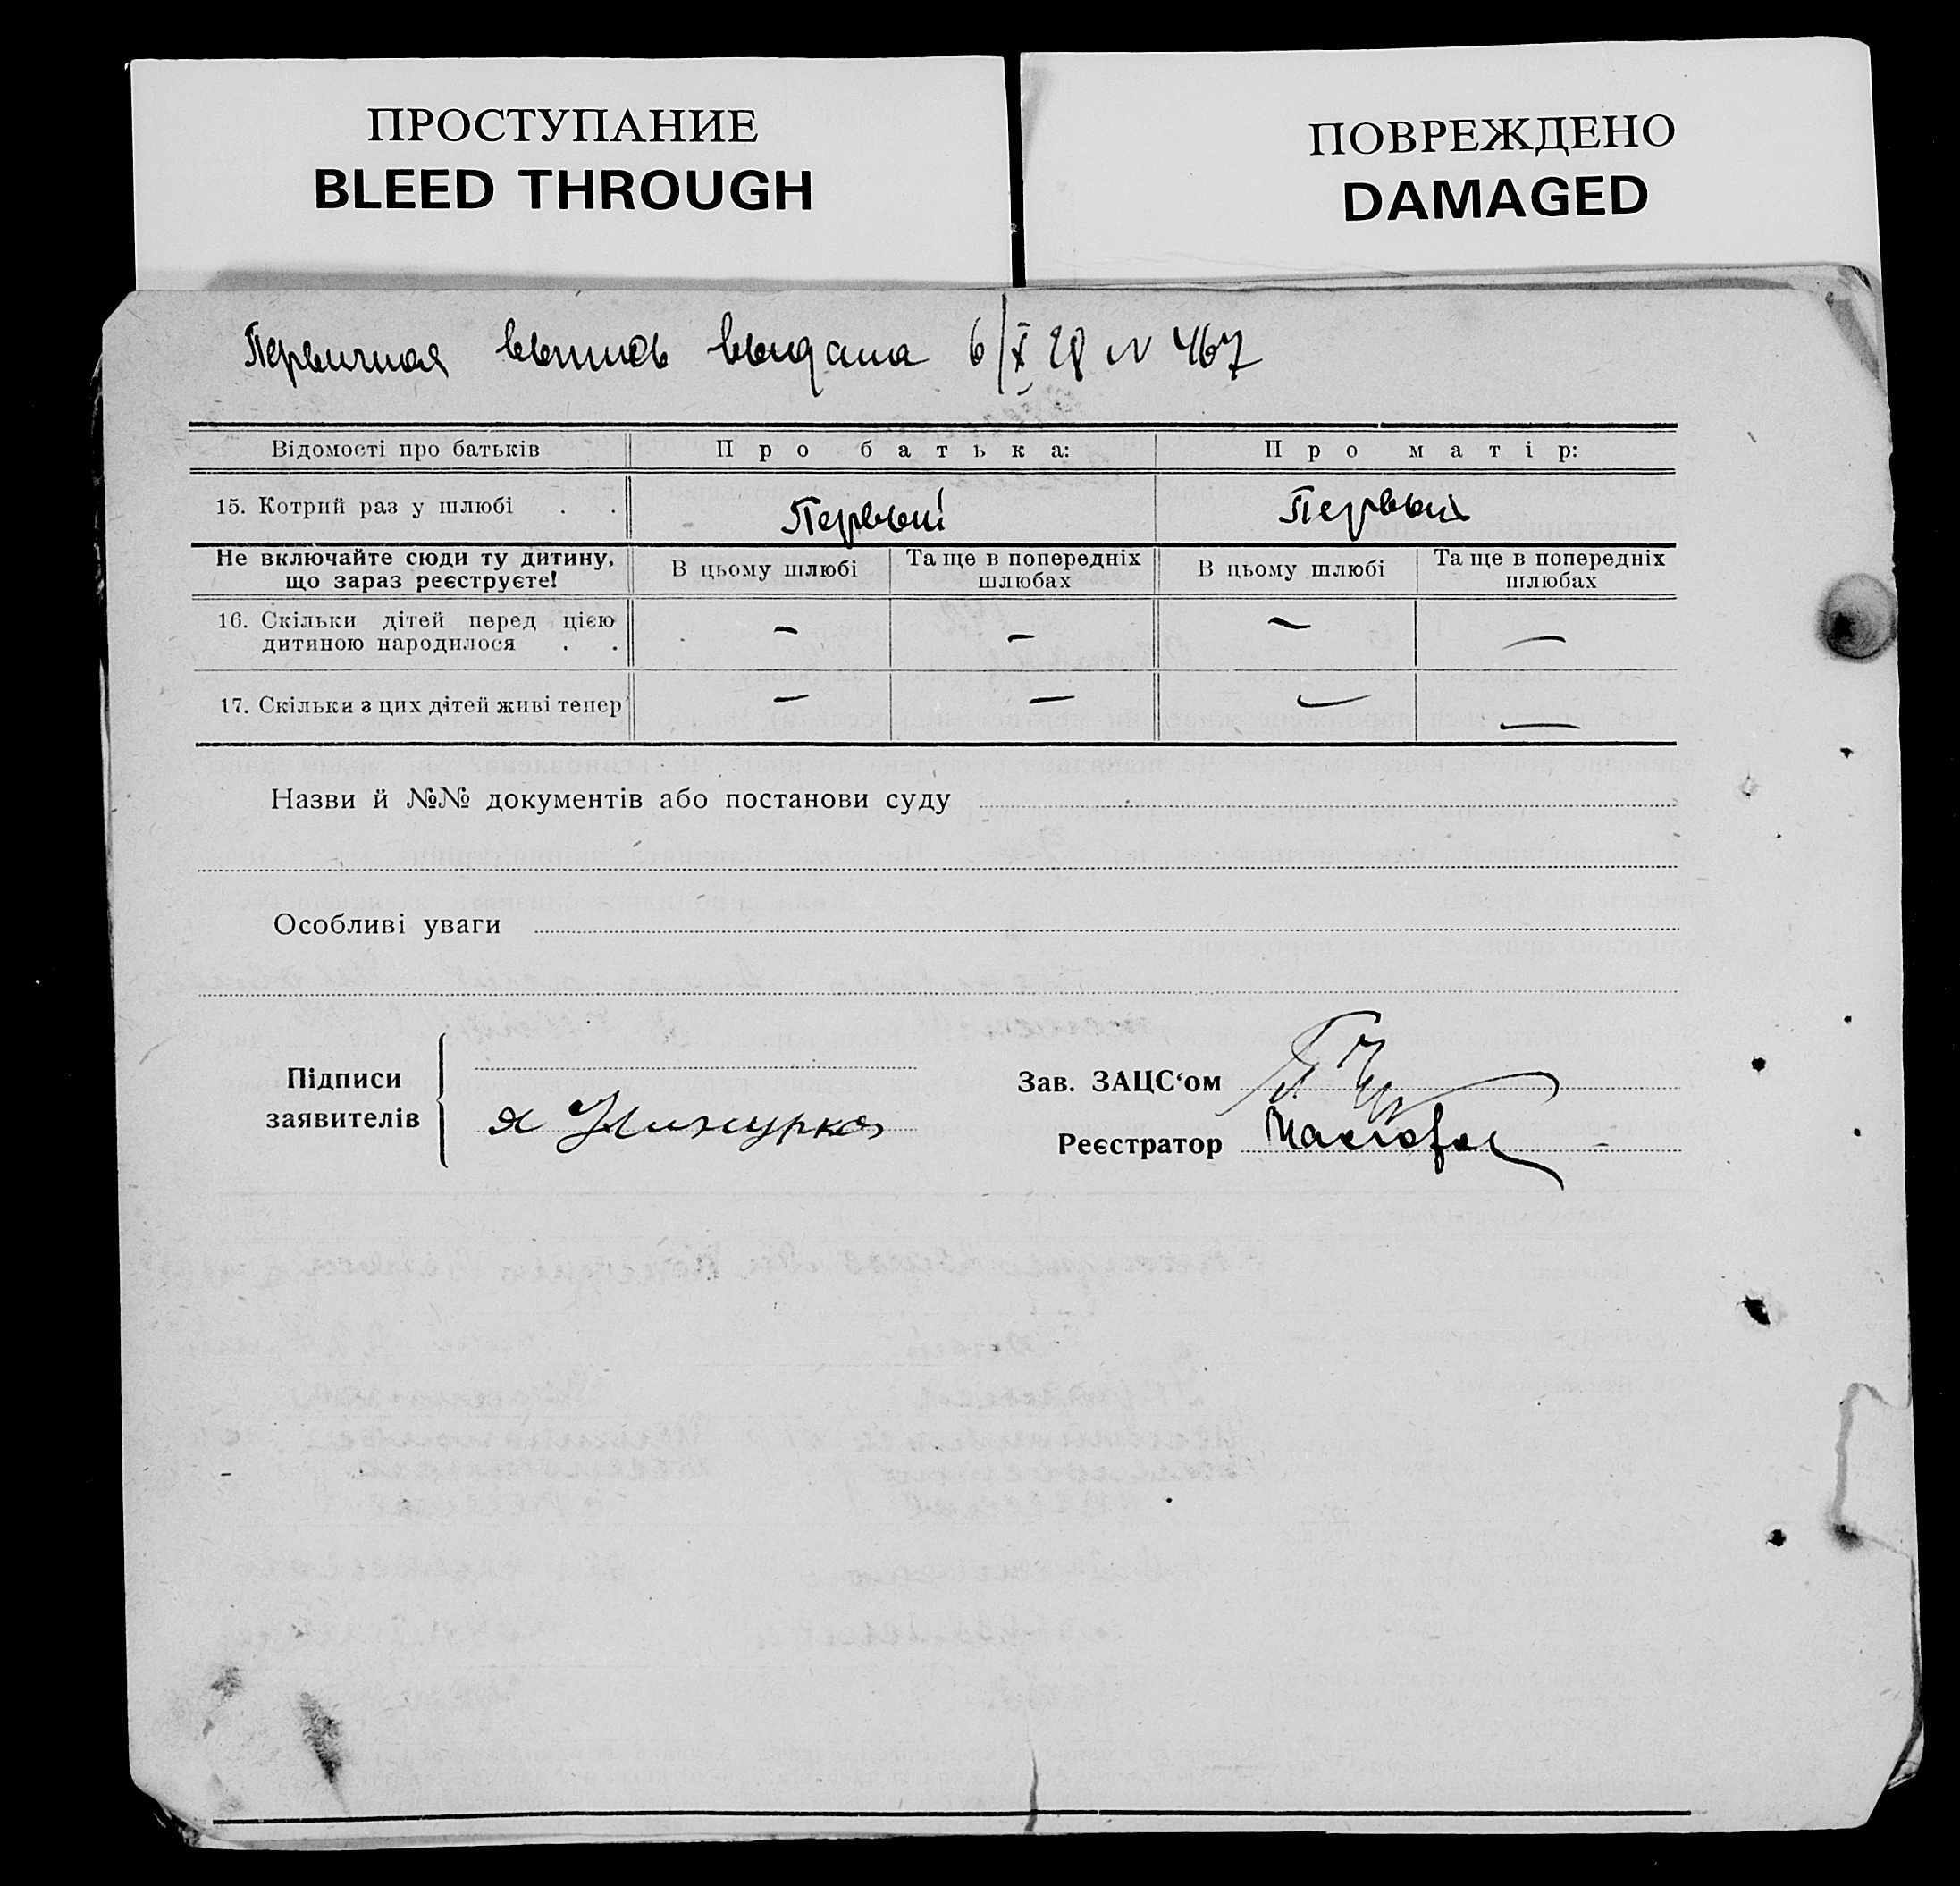 ПРОСТУПАНИЕ
BLEED THROUGH
ПОВРЕЖДЕНО
DAMAGED
Первичная выпись выдана 6/X 28 N 467
Відомості про батьків Про батька: Про матір:
15. Котрий раз у шлюбі . . Первый Первый
Не включайте сюди ту дитину, що зараз реєструєте! В цьому шлюбі Та ще в попередніх шлюбах В цьому шлюбі Та ще в попередніх шлюбах
16. Скільки дітей перед цією
дитиною народилося . . — — — —
17. Скільки з цих дітей живі тепер — — — —
Назви й №№ документів або постанови суду
Особливі уваги
Підписи
заявителів
Зав. ЗАЦС‘ом
Реєстратор